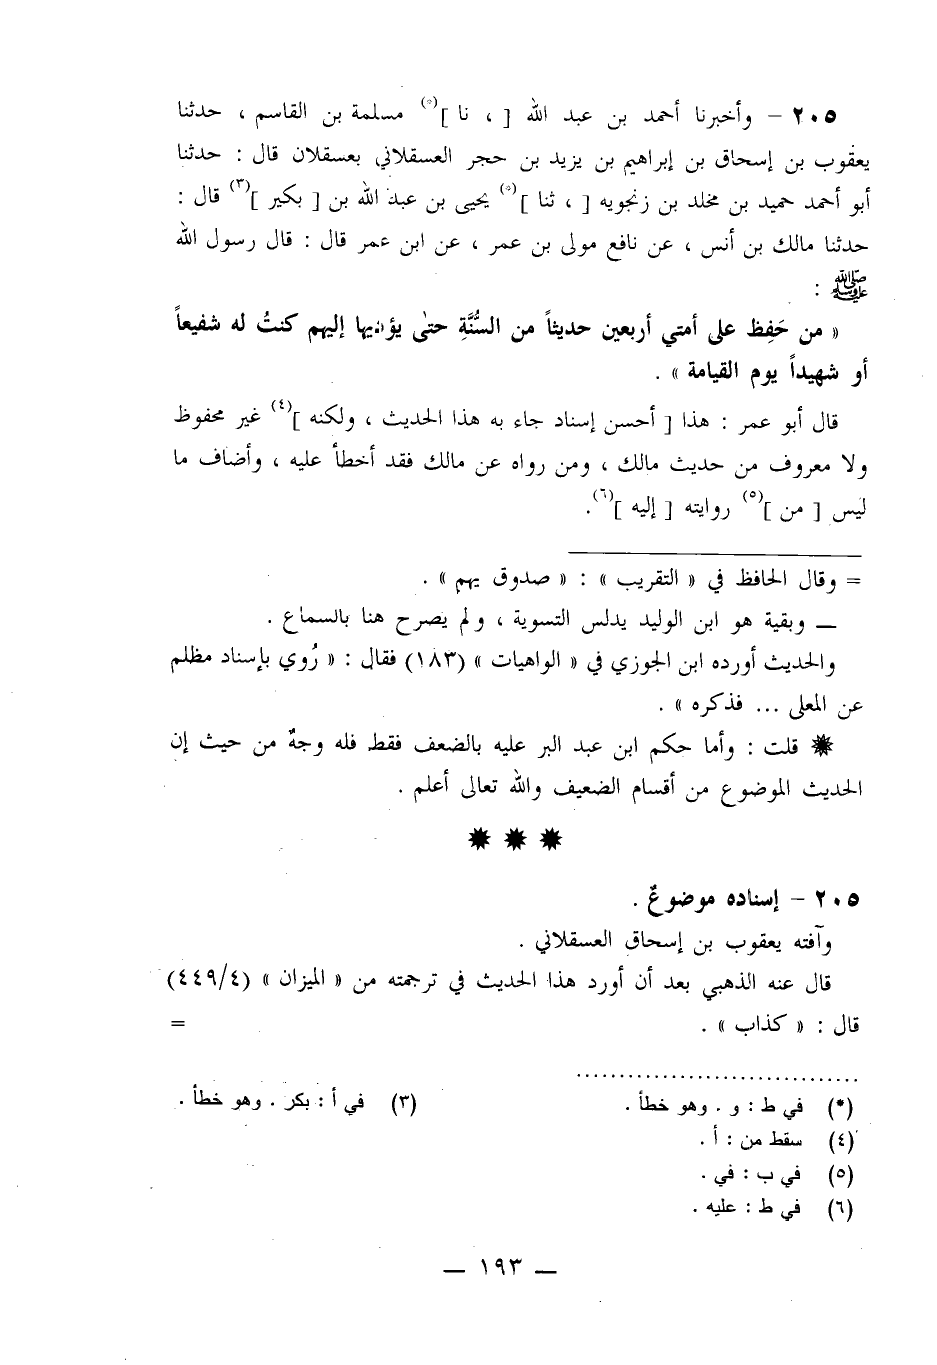 ٢٠٥ – وأخبرنا أحمد بن عبد الله [ ، نا ](*) مسلمة بن القاسم ، حدثنا
يعقوب بن إسحاق بن إبراهيم بن يزيد بن حجر العسقلاني بعسقلان قال : حدثنا
أبو أحمد حميد بن مخلد بن زنجويه [ ، ثنا ](*) يحيى بن عبد الله بن [ بكير ](٣) قال :
حدثنا مالك بن أنس ، عن نافع مولى بن عمر ، عن ابن عمر قال : قال رسول الله
ﷺ :
« من حَفِظ على أمتي أربعين حديثاً من السُّنَّةِ حتى يؤديها إليهم كنتُ له شفيعاً
أو شهيداً يوم القيامة » .
قال أبو عمر : هذا [ أحسن إسناد جاء به هذا الحديث ، ولكنه ](٤) غير محفوظ
ولا معروف من حديث مالك ، ومن رواه عن مالك فقد أخطأ عليه ، وأضاف ما
ليس [ من ](٥) روايته [ إليه ](٦).
= وقال الحافظ في « التقريب » : « صدوق يهم » .
ــ وبقية هو ابن الوليد يدلس التسوية ، ولم يصرح هنا بالسماع .
والحديث أورده ابن الجوزي في « الواهيات » (١٨٣) فقال : « رُوي بإسناد مظلم
عن المعلى ... فذكره » .
✹ قلت : وأما حكم ابن عبد البر عليه بالضعف فقط فله وجهٌ من حيث إن
الحديث الموضوع من أقسام الضعيف والله تعالى أعلم .
✹ ✹ ✹
٢٠٥ – إسناده موضوعٌ .
وآفته يعقوب بن إسحاق العسقلاني .
قال عنه الذهبي بعد أن أورد هذا الحديث في ترجمته من « الميزان » (٤/٤٤٩)
قال : « كذاب » . =
(*) في ط : و . وهو خطأ . (٣) في أ : بكر . وهو خطأ .
(٤) سقط من : أ .
(٥) في ب : في .
(٦) في ط : عليه .
— ١٩٣ —